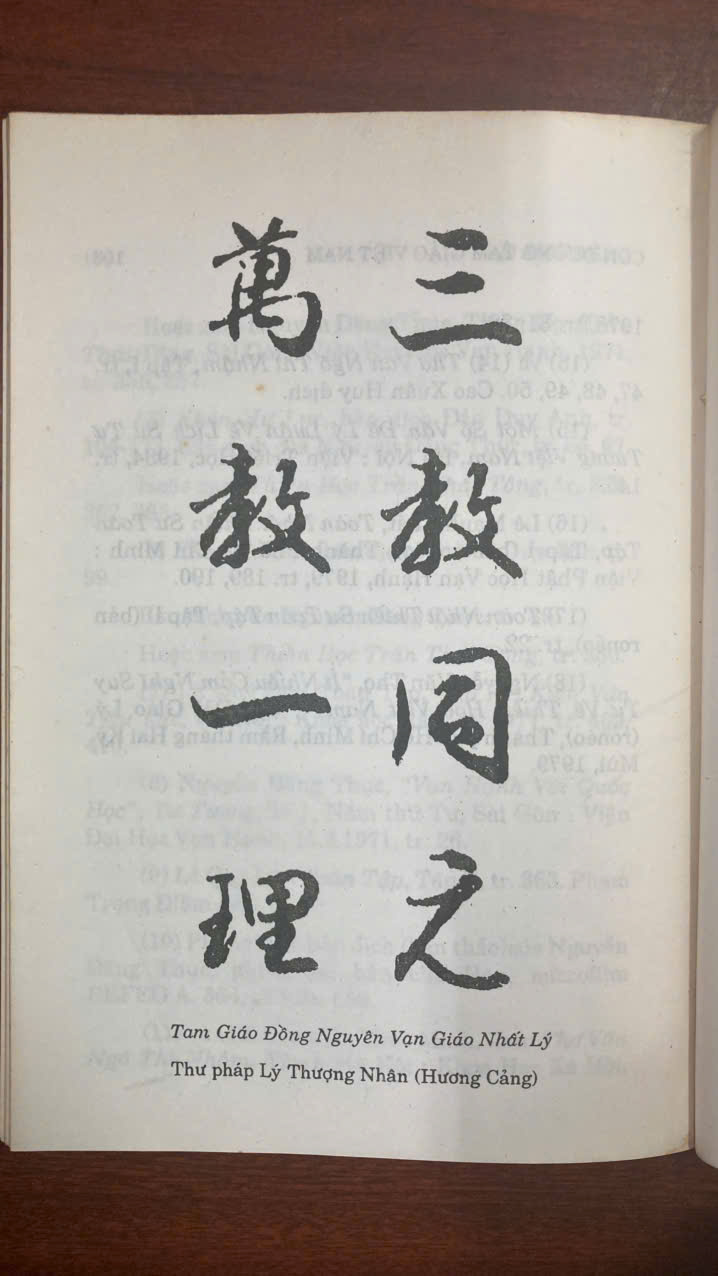 三教同元
萬教一理
Tam Giáo Đồng Nguyên Vạn Giáo Nhất Lý
Thư pháp Lý Thượng Nhân (Hương Cảng)